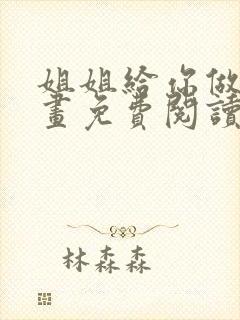 姐姐給你做
畫免費閱讀
林森森